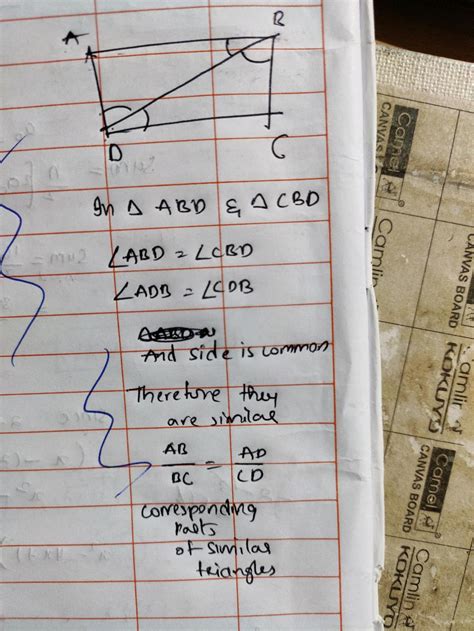 A
B
D
C
In Δ ABD & Δ CBD
∠ABD = ∠CBD
∠ADB = ∠CDB
And side is common
Therefore they
are similar
AB = AD
BC CD
corresponding
parts
of similar
triangles
Camel
CANVAS BOARD
Camlin
KOKUYO
CANVAS BOARD
Camlin
Camlin
KOKUYO
Camel
CANVAS BOARD
Camlin
KOKUYO